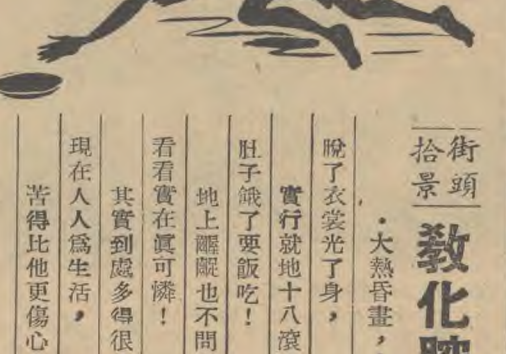 街頭
拾景
敎化
・大熱昏畫，
脫了衣裳光了身，
實行就地十八滾
肚子餓了要飯吃！
地上齷齪也不問
看看實在眞可憐！
其實到處多得很
現在人人爲生活，
苦得比他更傷心